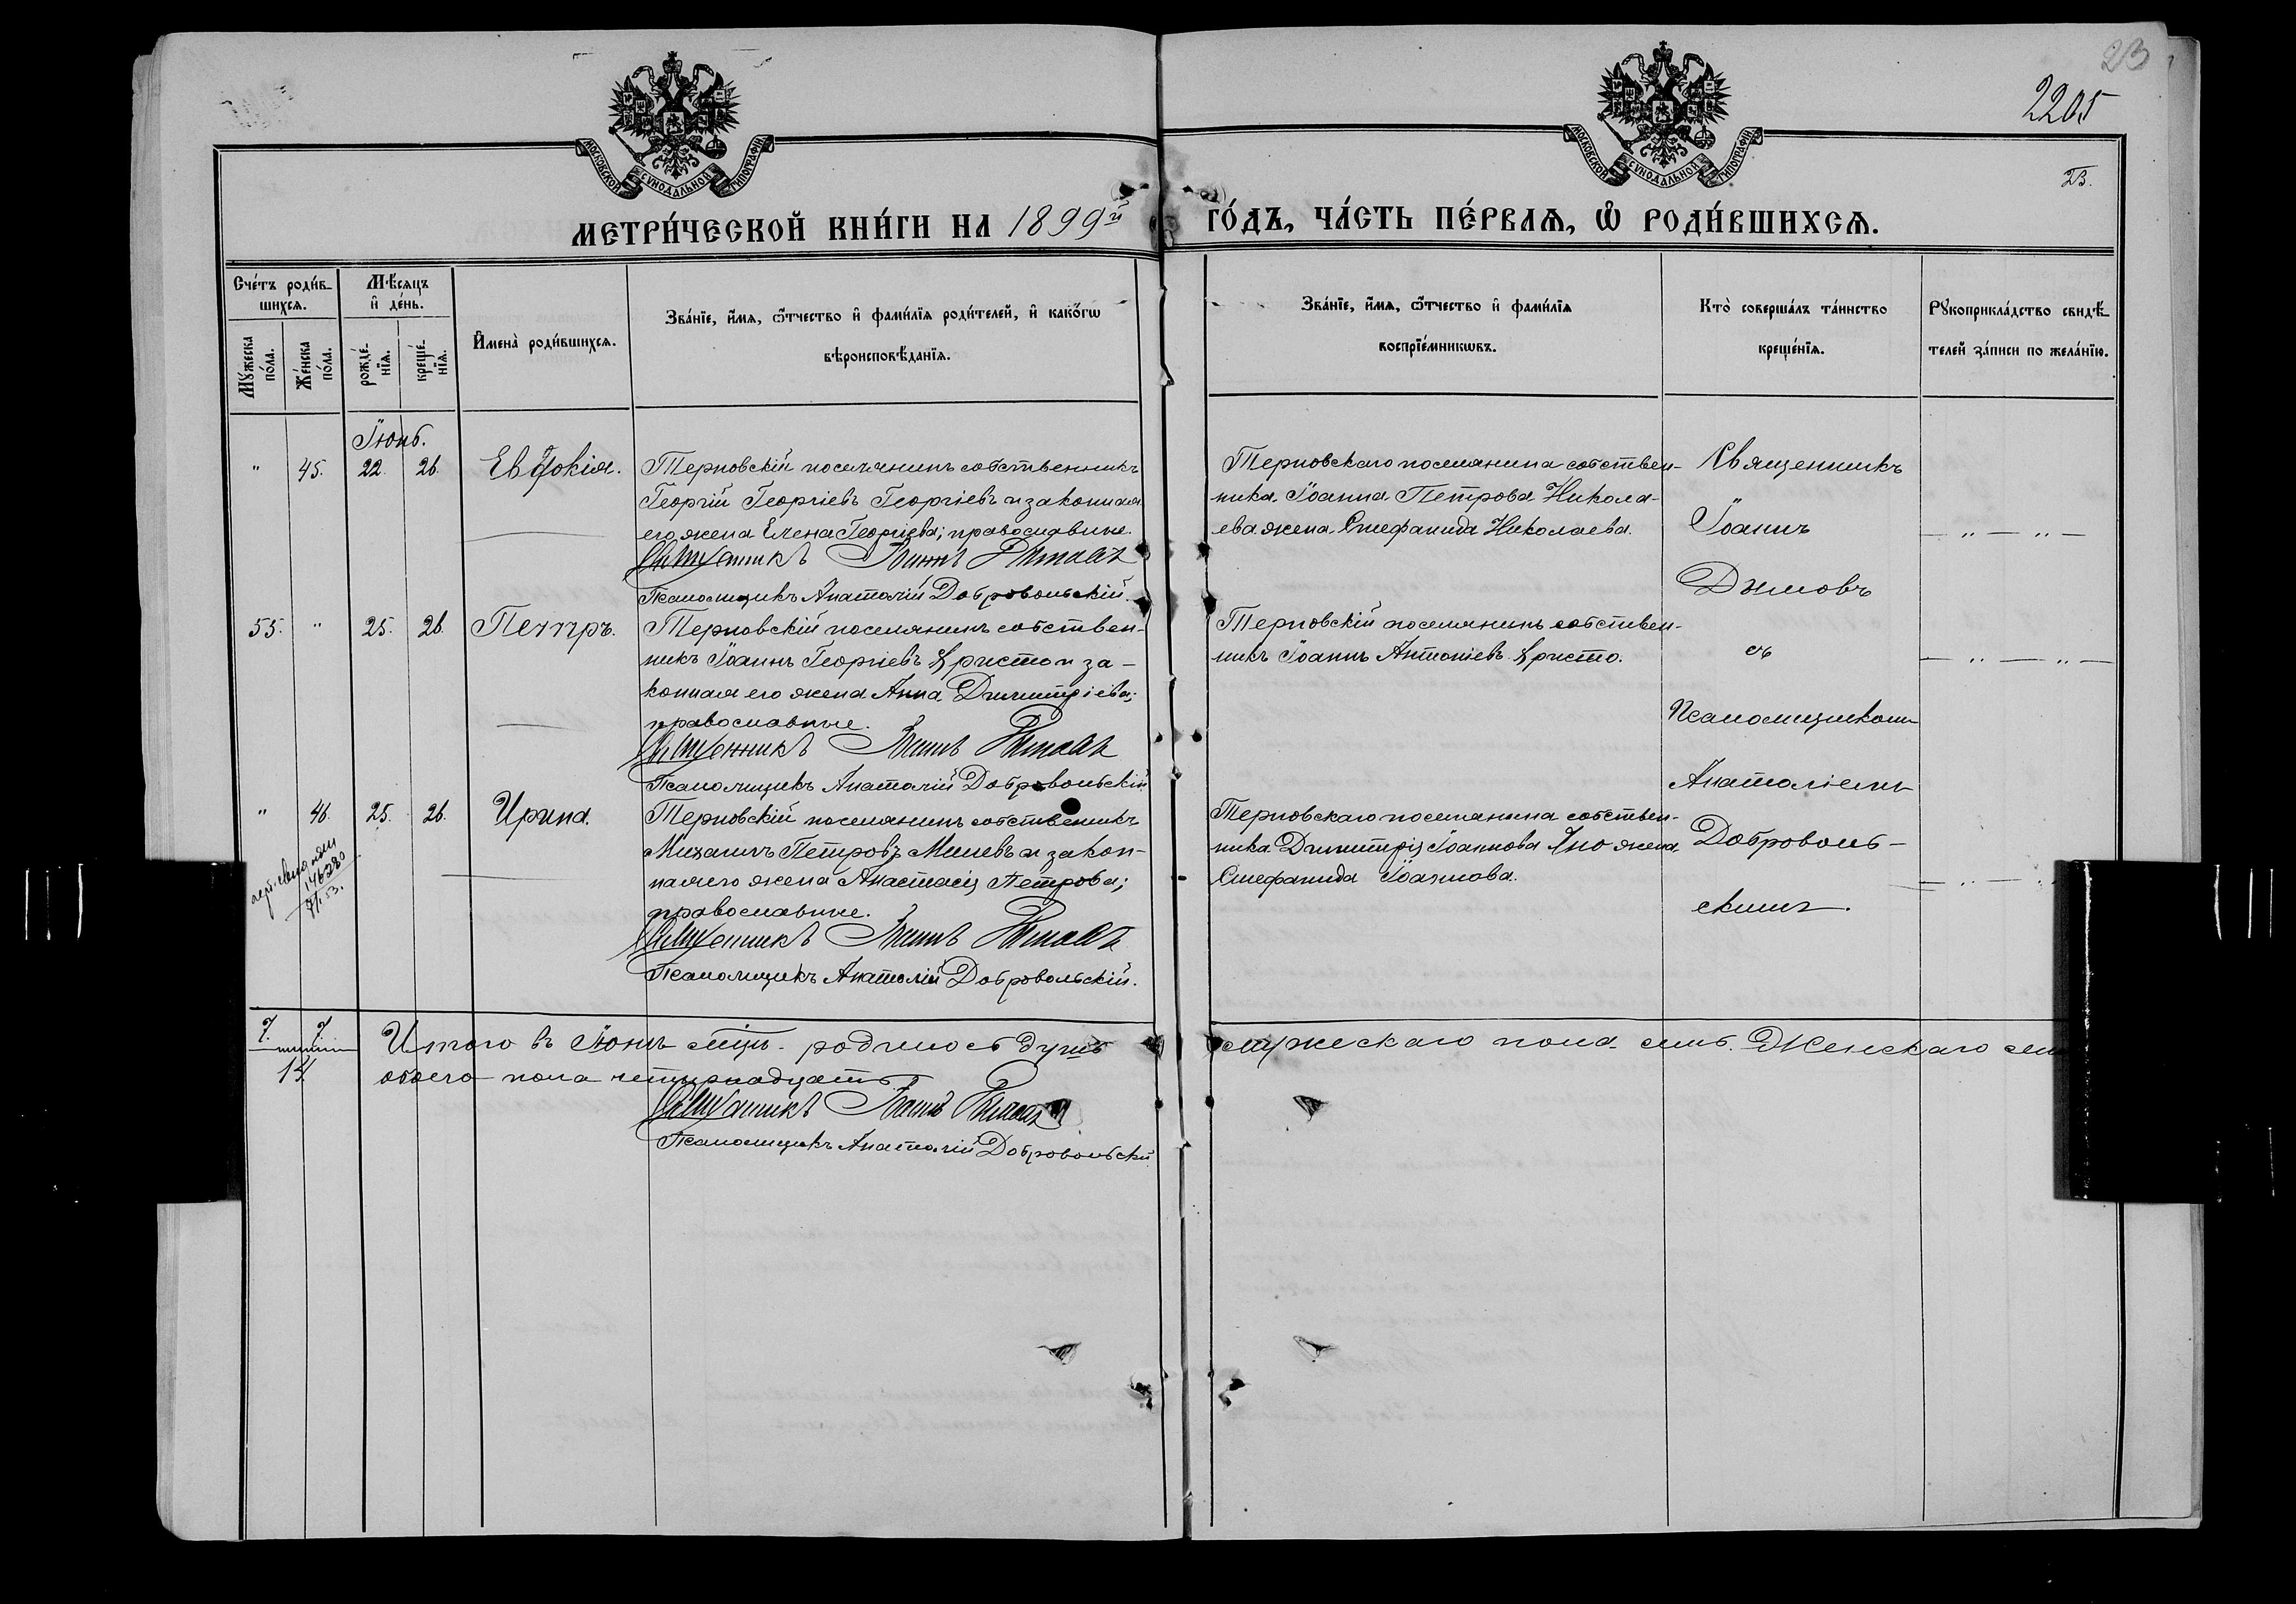 23
2205
23.
МОСКОВСКОЙ СѴНОДАЛЬНОЙ ТИПОГРАФІИ
МОСКОВСКОЙ СѴНОДАЛЬНОЙ ТИПОГРАФІИ
МЕТРИ́ЧЕСКОЙ КНИ́ГИ НА 1899й ГО́ДЪ, ЧА́СТЬ ПЕ́РВАѦ, Ѡ҆ РОДИ́ВШИХСѦ.
Сче́тъ роди́в-
шихсѧ.
Мꙋ́жеска по́ла.
Же́нска по́ла.
Мѣ́сѧцъ и҆ де́нь.
рожде́-нїѧ.
креще́-нїѧ.
И҆мена̀ роди́вшихсѧ.
Зва́нїе, и҆́мѧ, ѻ҆́тчество и҆ фами́лїѧ роди́телей, и҆ како́гѡ
вѣроисповѣ́данїѧ.
Зва́нїе, и҆́мѧ, ѻ҆́тчество и҆ фами́лїѧ
воспрїе́мникѡвъ.
Кто̀ соверша́лъ та́инство
креще́нїѧ.
Рꙋкоприкла́дство свидѣ́-
телей за́писи по жела́нїю.
Іюнь.
" 45. 22. 26. Евдокія.
Терновскій поселянинъ собственникъ
Георгій Георгіевъ Георгіевъ и законная
его жена Елена Георгіева; православные.
Священникъ Іоаннъ
Псаломщикъ Анатолій Добровольскій.
Терновскаго поселянина собствен-
ника Іоанна Петрова Никола-
ева жена Стефанида Николаева.
Священникъ
Іоаннъ
Димовъ
съ
Псаломщикомъ
Анатоліемъ
Доброволь-
скимъ.
— " — " —
55. " 25. 26. Петръ.
Терновскій поселянинъ собствен-
никъ Іоаннъ Георгіевъ Христо и за-
конная его жена Анна Димитріева;
православные.
Священникъ Іоаннъ
Псаломщикъ Анатолій Добровольскій
Терновскій поселянинъ собствен-
никъ Іоаннъ Антоніевъ Христо.
— " — " —
" 46. 25. 26. Ирина.
146280
Терновскій поселянинъ собственникъ
Михаилъ Петровъ Милевъ и закон-
ная его жена Анастасія Петрова;
православные.
Священникъ Іоаннъ
Псаломщикъ Анатолій Добровольскій.
Терновскаго поселянина собствен-
ника Димитрія Іоаннова жена
Стефанида Іоаннова.
7. 7
14.
Итого въ Іюнѣ мѣц. родилось душъ мужескаго пола семь. Женскаго сем
обоего пола четырнадцать.
Священникъ Іоаннъ
Псаломщикъ Анатолій Добровольскій